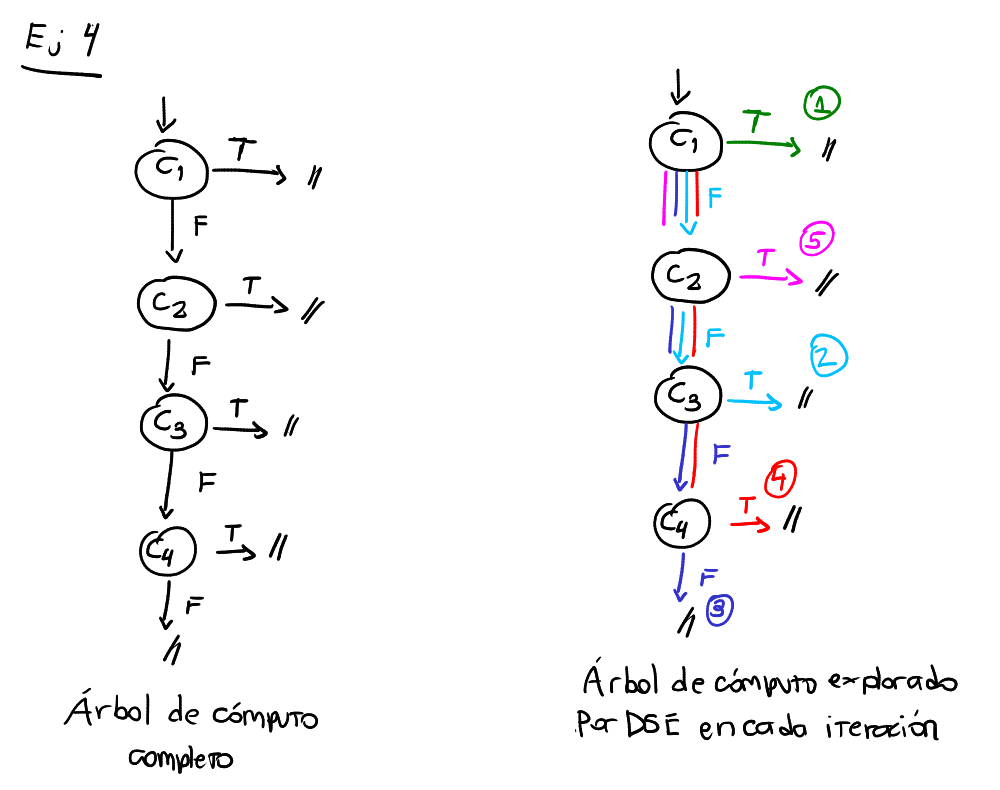 Ej 4
C1
T
//
F
C2
T
//
F
C3
T
//
F
C4
T
//
F
//
Árbol de cómputo
completo
C1
T
1
//
F
C2
T
5
//
F
C3
T
2
//
F
C4
T
4
//
F
3
//
Árbol de cómputo explorado
por DSE en cada iteración